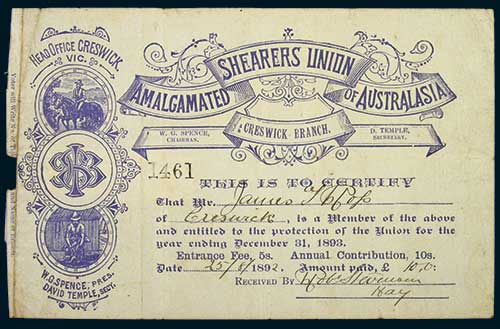 HEAD OFFICE CRESWICK
VIC.
W.G. SPENCE, PRES.
DAVID TEMPLE, SECY.
AMALGAMATED SHEARERS UNION OF AUSTRALASIA
W. G. SPENCE,
CHAIRMAN.
CRESWICK BRANCH.
D. TEMPLE,
SECRETARY.
1461
THIS IS TO CERTIFY
That Mr. James
of Creswick, is a Member of the above
and entitled to the protection of the Union for the
year ending December 31, 1893.
Entrance Fee, 5s. Annual Contribution, 10s.
Date 1892. Amount paid, £ 10
RECEIVED BY
Hay